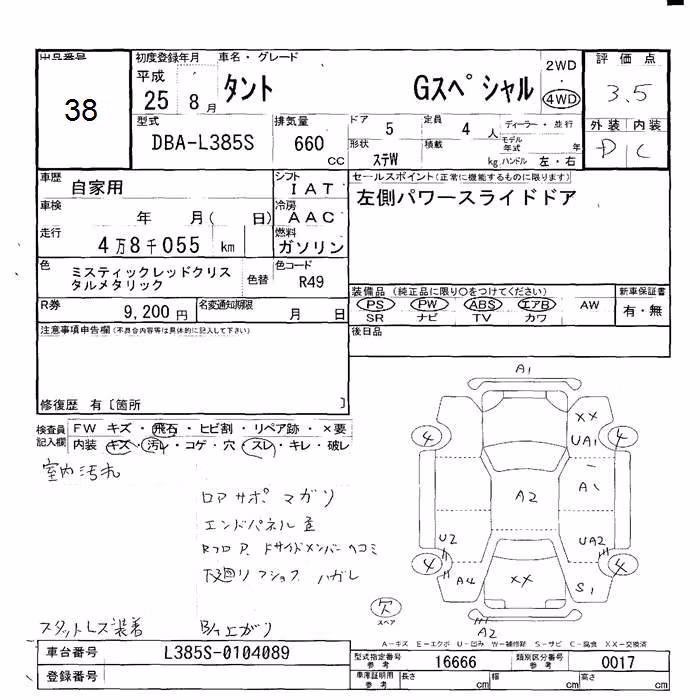 出品番号 初度登録年月 車名・グレード 2WD 評価点
38 平成 25 8月 タント Gスペシャル ・ 4WD 3.5
型式 排気量 ドア 5 定員 4人 ディーラー・並行 外装 内装
DBA-L385S 660cc 形状 ステW 積載 kg モデル年式 年 ハンドル 左・右 D C
車歴 自家用 シフト IAT セールスポイント(正常に機能するものに限ります)
車検 年 月( 日) 冷房 AAC 左側パワースライドドア
走行 4万8千055 km 燃料 ガソリン
色 ミスティックレッドクリスタルメタリック 色替 色コード R49
装備品(純正品に限り○をつけてください) 新車保証書
PS PW ABS エアB AW 有・無
SR ナビ TV カワ
R券 9,200円 名変通知期限 月 日
後日品
注意事項申告欄(不具合内容等は具体的に記入して下さい)
修復歴 有〔箇所 〕
検査員記入欄 FW キズ・飛石・ヒビ割・リペア跡・×要
内装 キズ・汚れ・コゲ・穴・スレ・キレ・破レ
室内汚れ
ロアサポ マガリ
エンドパネル
フロア
サイドメンバー ヘコミ
下廻り
ハガレ
スタットレス装着
A1
XX
UA1
4 4
A1
A2
U2 UA2
4 4
A4 XX S1
欠
スペア
A2
A-キズ E-エクボ U-凹み W-補修跡 S-サビ C-腐食 XX-交換済
車台番号 L385S-0104089 型式指定番号 参考 16666 類別区分番号 参考 0017
登録番号 車庫証明用 参考 長さ cm 幅 cm 高さ cm